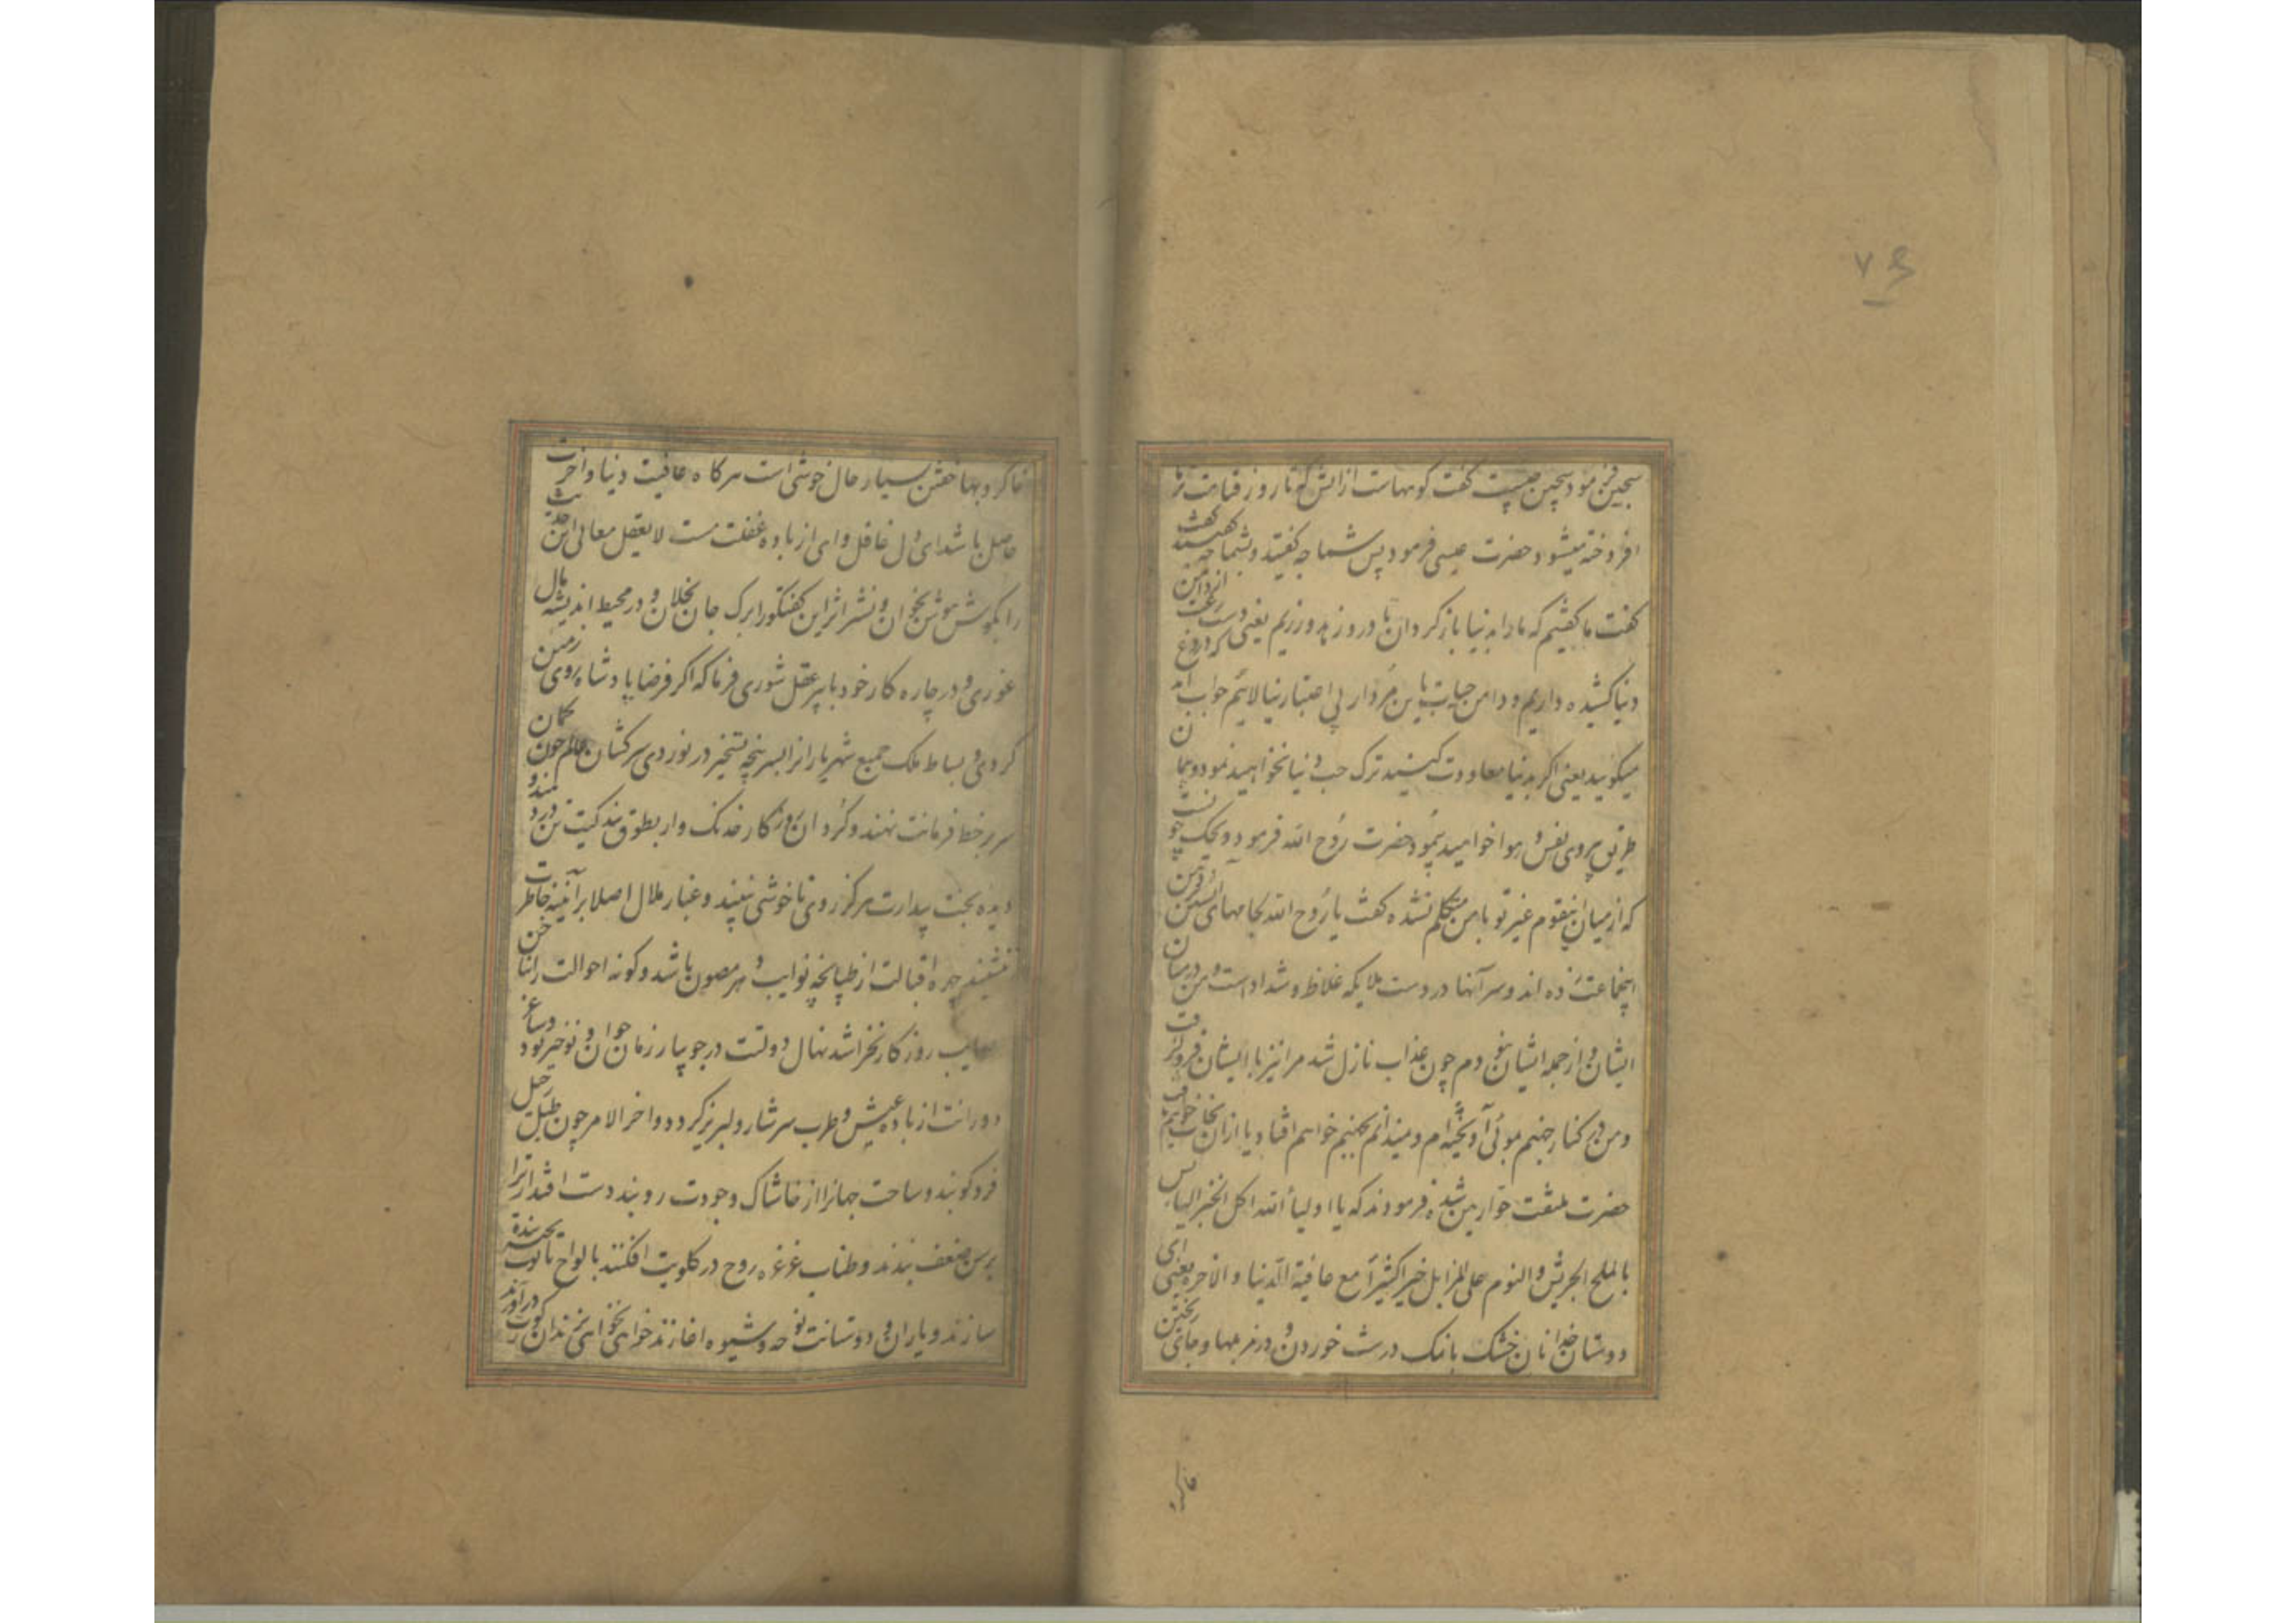 ۷۶
سجین فرمود سجین چیست گفت کوههاست از آتش که تا روز قیامت بر ما
افروخته میشود حضرت عیسی فرمود پس شما چه گفتید و بشما چه گفتند
گفت ما گفتیم که ما را بدنیا باز گردان تا در و زهد ورزیم یعنی دست رغبت از دامن
دنیا کشیده داریم و دامن حیات باین مردار بی اعتبار نیالائیم جواب آمد که دروغ
میگویید یعنی اگر بدنیا معاودت کنید ترک حب دنیا نخواهید نمود و همان
طریق پیروی نفس و هوا خواهید پیمود حضرت روح الله فرمود و یحک چونست
که از میان اینقوم غیر تو با من متکلم نشده گفت یا روح الله لجامهای آتشین در دهن
اینجماعت زده اند و سر آنها در دست ملایکه غلاظ و شداد است و من در میان
ایشان و از جمله ایشان نبودم چون عذاب نازل شد مرا نیز با ایشان فرو گرفت
و من در کنار جهنم بموئی آویخته ام و نمیدانم بجهنم خواهم افتاد یا از آن نجات خواهم یافت
حضرت ملتفت حوارین شده فرمودند که یا اولیاء الله اکل الخبز الیابس
بالملح الجریش و النوم علی المزابل خیر کثیراً مع عافیة الدنیا و الاخره یعنی ای
دوستان خدا نان خشک بانمک درشت خوردن و در مزبلها و جای ریختن
خاکروبها خفتن بسیار حال خوشی است هر گاه عافیت دنیا و آخرت
حاصل باشد ای دل غافل و ای از باده غفلت مست لا یعقل معانی این حدیث
را بگوش هوش بخوان و نشتر اثر این گفتگو را برگ جان بخلان و در محیط اندیشه بال
غوری و در چاره کار خود با پیر عقل شوری فرما که اگر فرضا پادشاه روی زمین
گردی و بساط ملک جمیع شهریاران را بسر پنجه تسخیر در نوردی سرکشان عالم چون کمان
سر بر خط فرمانت نهند و گردان روزگار خدنگ وار بطوق بندگیت تن در دهند و
دیده بخت بیدارت هرگز روی ناخوشی نبیند و غبار ملال اصلا بر آئینه خاطرت
ننشیند چهره اقبالت از طپانچه نوایب دهر مصون باشد و گونه احوالت را ناخن
مصایب روزگار نخراشد نهال دولتت در جویبار زمان جوان و نوخیز بود و ساغر
دورانت از باده عیش و طرب سرشار و لبریز گردد و اخر الامر چون طبل رحیل
فرو کوبند و ساحت جهانرا از خاشاک وجودت روبند دست اقتدار ترا
برسن ضعف بندند و طناب غرغره روح در گلویت افکنند بالواح تابوت تخته بند
سازند و یاران و دوستانت نوحه و شیوه اغازند خواهی نخواهی بزندان گورت در آورند
خاکر